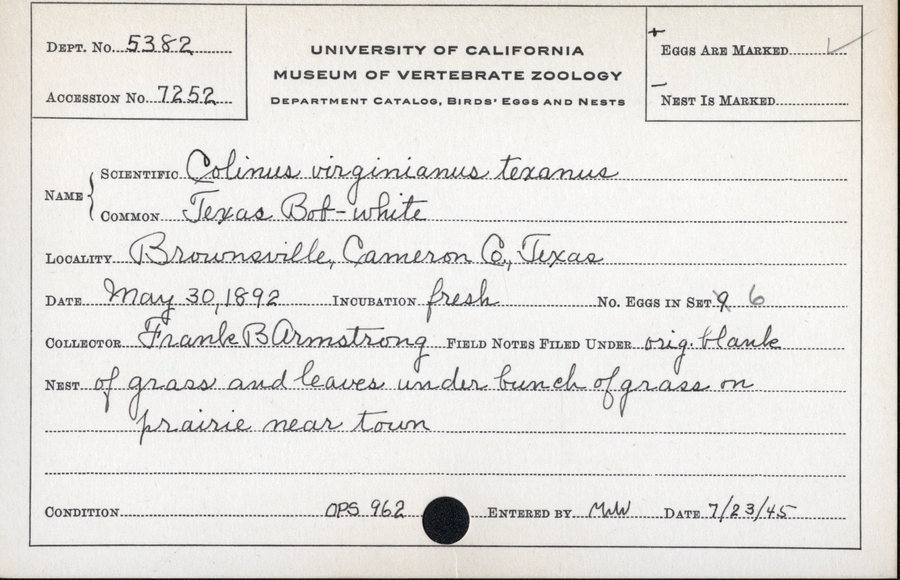 DEPT. No. 5382
ACCESSION No. 7252
UNIVERSITY OF CALIFORNIA
MUSEUM OF VERTEBRATE ZOOLOGY
DEPARTMENT CATALOG, BIRDS' EGGS AND NESTS
+ EGGS ARE MARKED ✓
– NEST IS MARKED
NAME { SCIENTIFIC Colinus virginianus texanus
COMMON Texas Bob-white
LOCALITY Brownsville, Cameron Co., Texas
DATE May 30, 1892 INCUBATION fresh NO. EGGS IN SET 9 6
COLLECTOR Frank B Armstrong FIELD NOTES FILED UNDER orig. blank
NEST of grass and leaves under bunch of grass on
prairie near town
CONDITION OPS 962 ENTERED BY MWW DATE 7/23/45